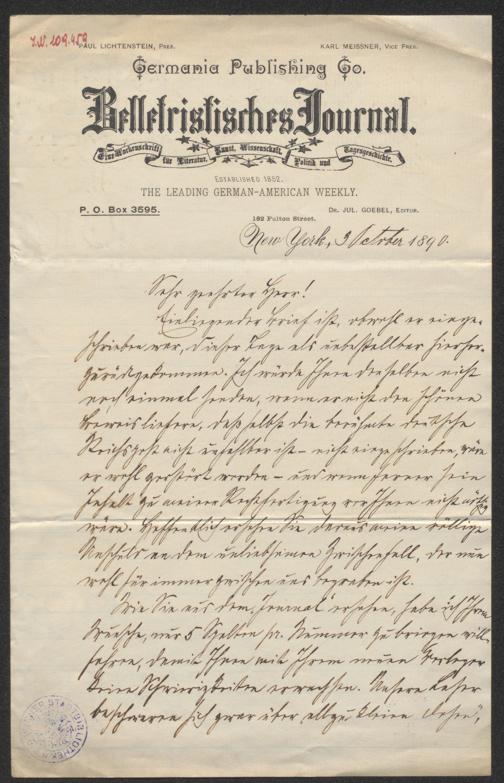 I.N. 109.459
PAUL LICHTENSTEIN, PRES.
KARL MEISSNER, VICE PRES.
Germania Publishing Co.
Belletristisches Journal.
Eine Wochenschrift für Literatur, Kunst, Wissenschaft, Politik und Tagesgeschichte.
ESTABLISHED 1852.
THE LEADING GERMAN-AMERICAN WEEKLY.
P. O. Box 3595.
DR. JUL. GOEBEL, EDITOR.
182 Fulton Street.
New York, 3 October 1890.
Sehr geehrter Herr!
Einliegender Brief ist, obwohl er einge-
schrieben war, dieser Tage als unbestellbar hierher
zurückgekommen. Ich würde Ihnen denselben nicht
noch einmal senden, wenn er nicht den schönen
Beweis liefere, daß selbst die berühmte deutsche
Reichspost nicht unfehlbar ist – nicht eingeschrieben, wäre
er wohl zerstört worden – und wenn ferner sein
Inhalt zu meiner Rechtfertigung vor Ihnen nicht nöthig
wäre. Hoffentlich ersehen Sie daraus meine völlige
Unschuld an dem unliebsamen Zwischenfall, der nun
wohl für immer zwischen uns begraben ist.
Wie Sie aus dem „Journal" ersehen, habe ich Ihrem
Wunsche, nur 5 Spalten pr. Nummer zu bringen will-
fahren, damit Ihnen mit Ihrem neuen Verleger
keine Schwierigkeiten erwachsen. Unsere Leser
beschweren sich zwar über allzu kleine „Dosen",